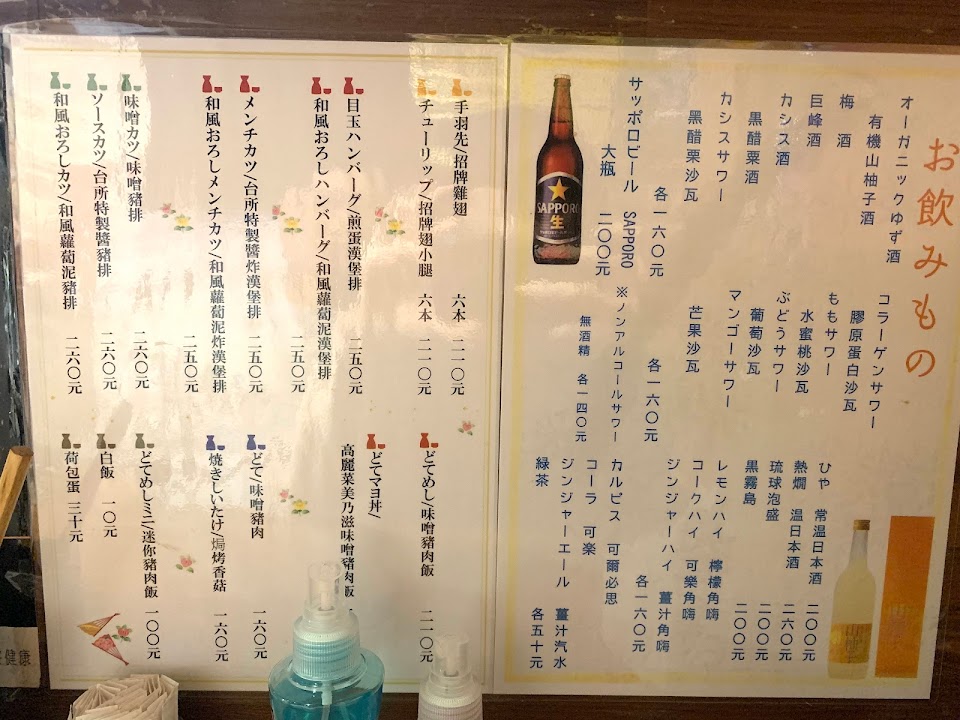 お飲みもの
オーガニックゆず酒
有機山柚子酒
梅酒
巨峰酒
カシス酒
黒醋栗酒
カシスサワー
黑醋栗沙瓦
各一六〇元
サッポロビール SAPPORO
大瓶 二〇〇元
SAPPORO
生
コラーゲンサワー
膠原蛋白沙瓦
ももサワー
水蜜桃沙瓦
ぶどうサワー
葡萄沙瓦
マンゴーサワー
芒果沙瓦
各一六〇元
※ノンアルコールサワー
無酒精 各一四〇元
ひや 常温日本酒 二〇〇元
熱燗 温日本酒 二六〇元
琉球泡盛 二〇〇元
黒霧島 二〇〇元
レモンハイ 檸檬角嗨
コークハイ 可樂角嗨
ジンジャーハイ 薑汁角嗨
各一六〇元
カルピス 可爾必思
コーラ 可楽
ジンジャーエール 薑汁汽水
緑茶 各五十元
手羽先/招牌雞翅 六本 二一〇元
チューリップ/招牌翅小腿 六本 二一〇元
目玉ハンバーグ/煎蛋漢堡排 二五〇元
和風おろしハンバーグ/和風蘿蔔泥漢堡排 二五〇元
メンチカツ/台所特製醬炸漢堡排 二五〇元
和風おろしメンチカツ/和風蘿蔔泥炸漢堡排 二五〇元
味噌カツ/味噌豬排 二六〇元
ソースカツ/台所特製醬豬排 二六〇元
和風おろしカツ/和風蘿蔔泥豬排 二六〇元
どてめし/味噌豬肉飯 二一〇元
どてマヨ丼/
高麗菜美乃滋味噌豬肉飯
どて/味噌豬肉 一六〇元
焼きしいたけ/焗烤香菇 一六〇元
どてめしミニ/迷你豬肉飯 一〇〇元
白飯 一〇元
荷包蛋 三十元
健康